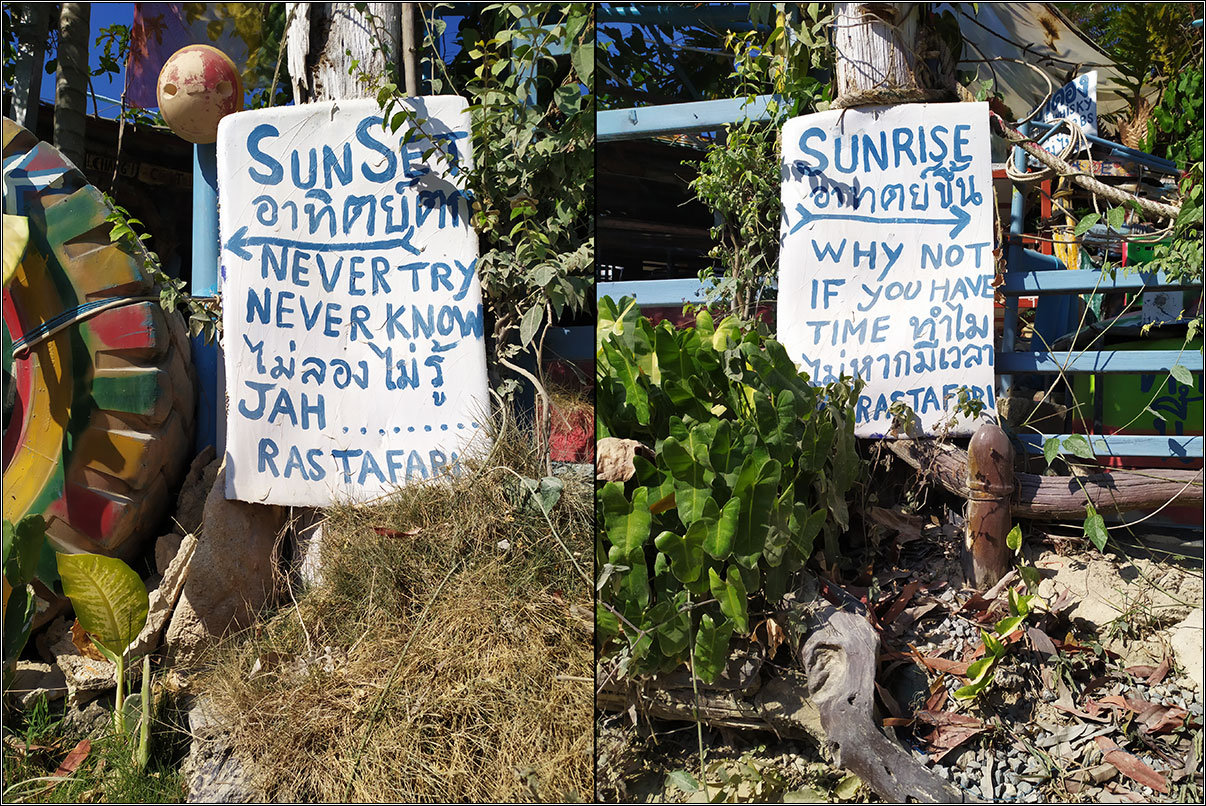 SUNSET
อาทิตย์ตก
NEVER TRY
NEVER KNOW
ไม่ลองไม่รู้
JAH ..........
RASTAFARI
SUNRISE
อาทิตย์ขึ้น
WHY NOT
IF YOU HAVE
TIME ทำไม
ไม่หากมีเวลา
RASTAFARI
SKY